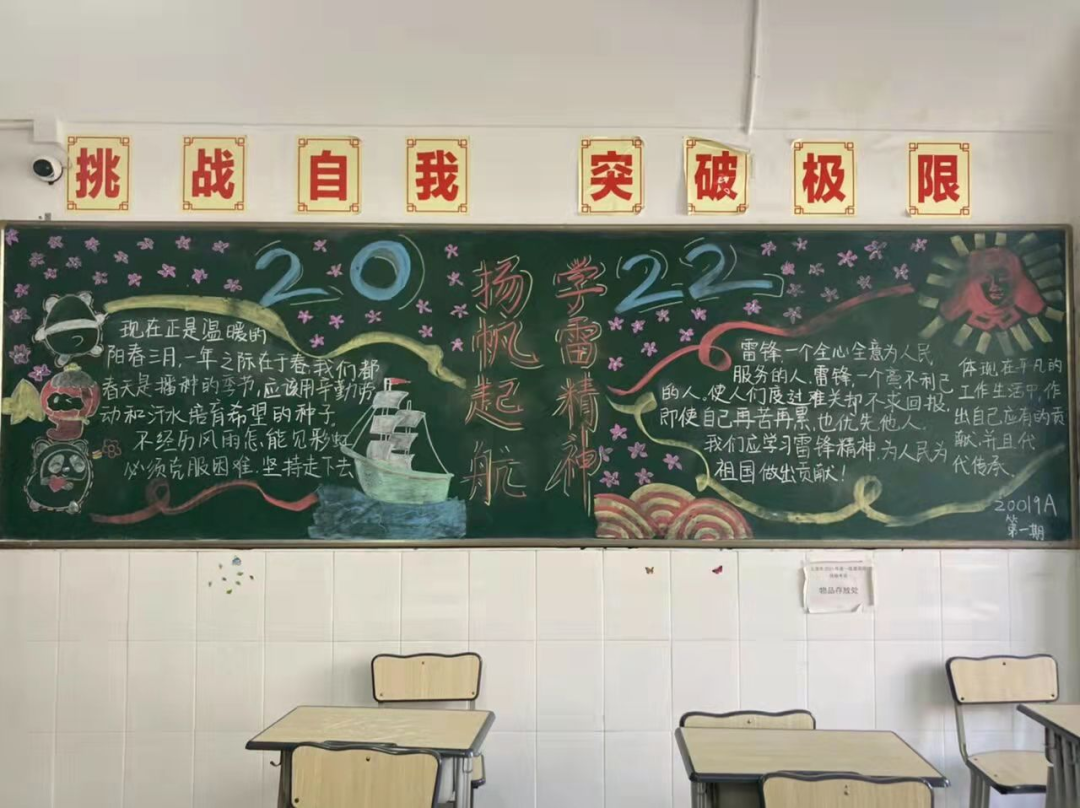 挑战自我 突破极限
2022
扬帆起航
学雷精神
现在正是温暖的
阳春三月,一年之际在于春,我们都
春天是播种的季节,应该用辛勤劳
动和汗水培育希望的种子。
不经历风雨怎,能见彩虹
必须克服困难,坚持走下去
雷锋,一个全心全意为人民
服务的人,雷锋,一个毫不利己
的人。使人们度过难关却不求回报,
即使自己再苦再累,也优先他人。
我们应学习雷锋精神,为人民为
祖国做出贡献!
体现在平凡的
工作生活中,作
出自己应有的贡
献,并且代
代传承。
20019A
第一期
物品存放处